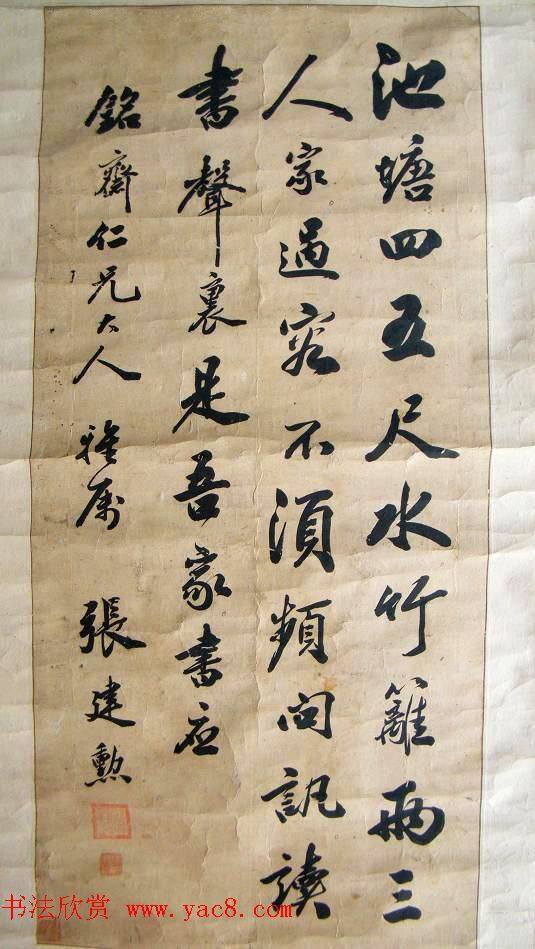 池塘四五尺水竹籬兩三
人家過客不須頻問訊讀
書聲裏是吾家書应
銘齋仁兄大人 雅属 張建勲
书法欣赏 www.yac8.com